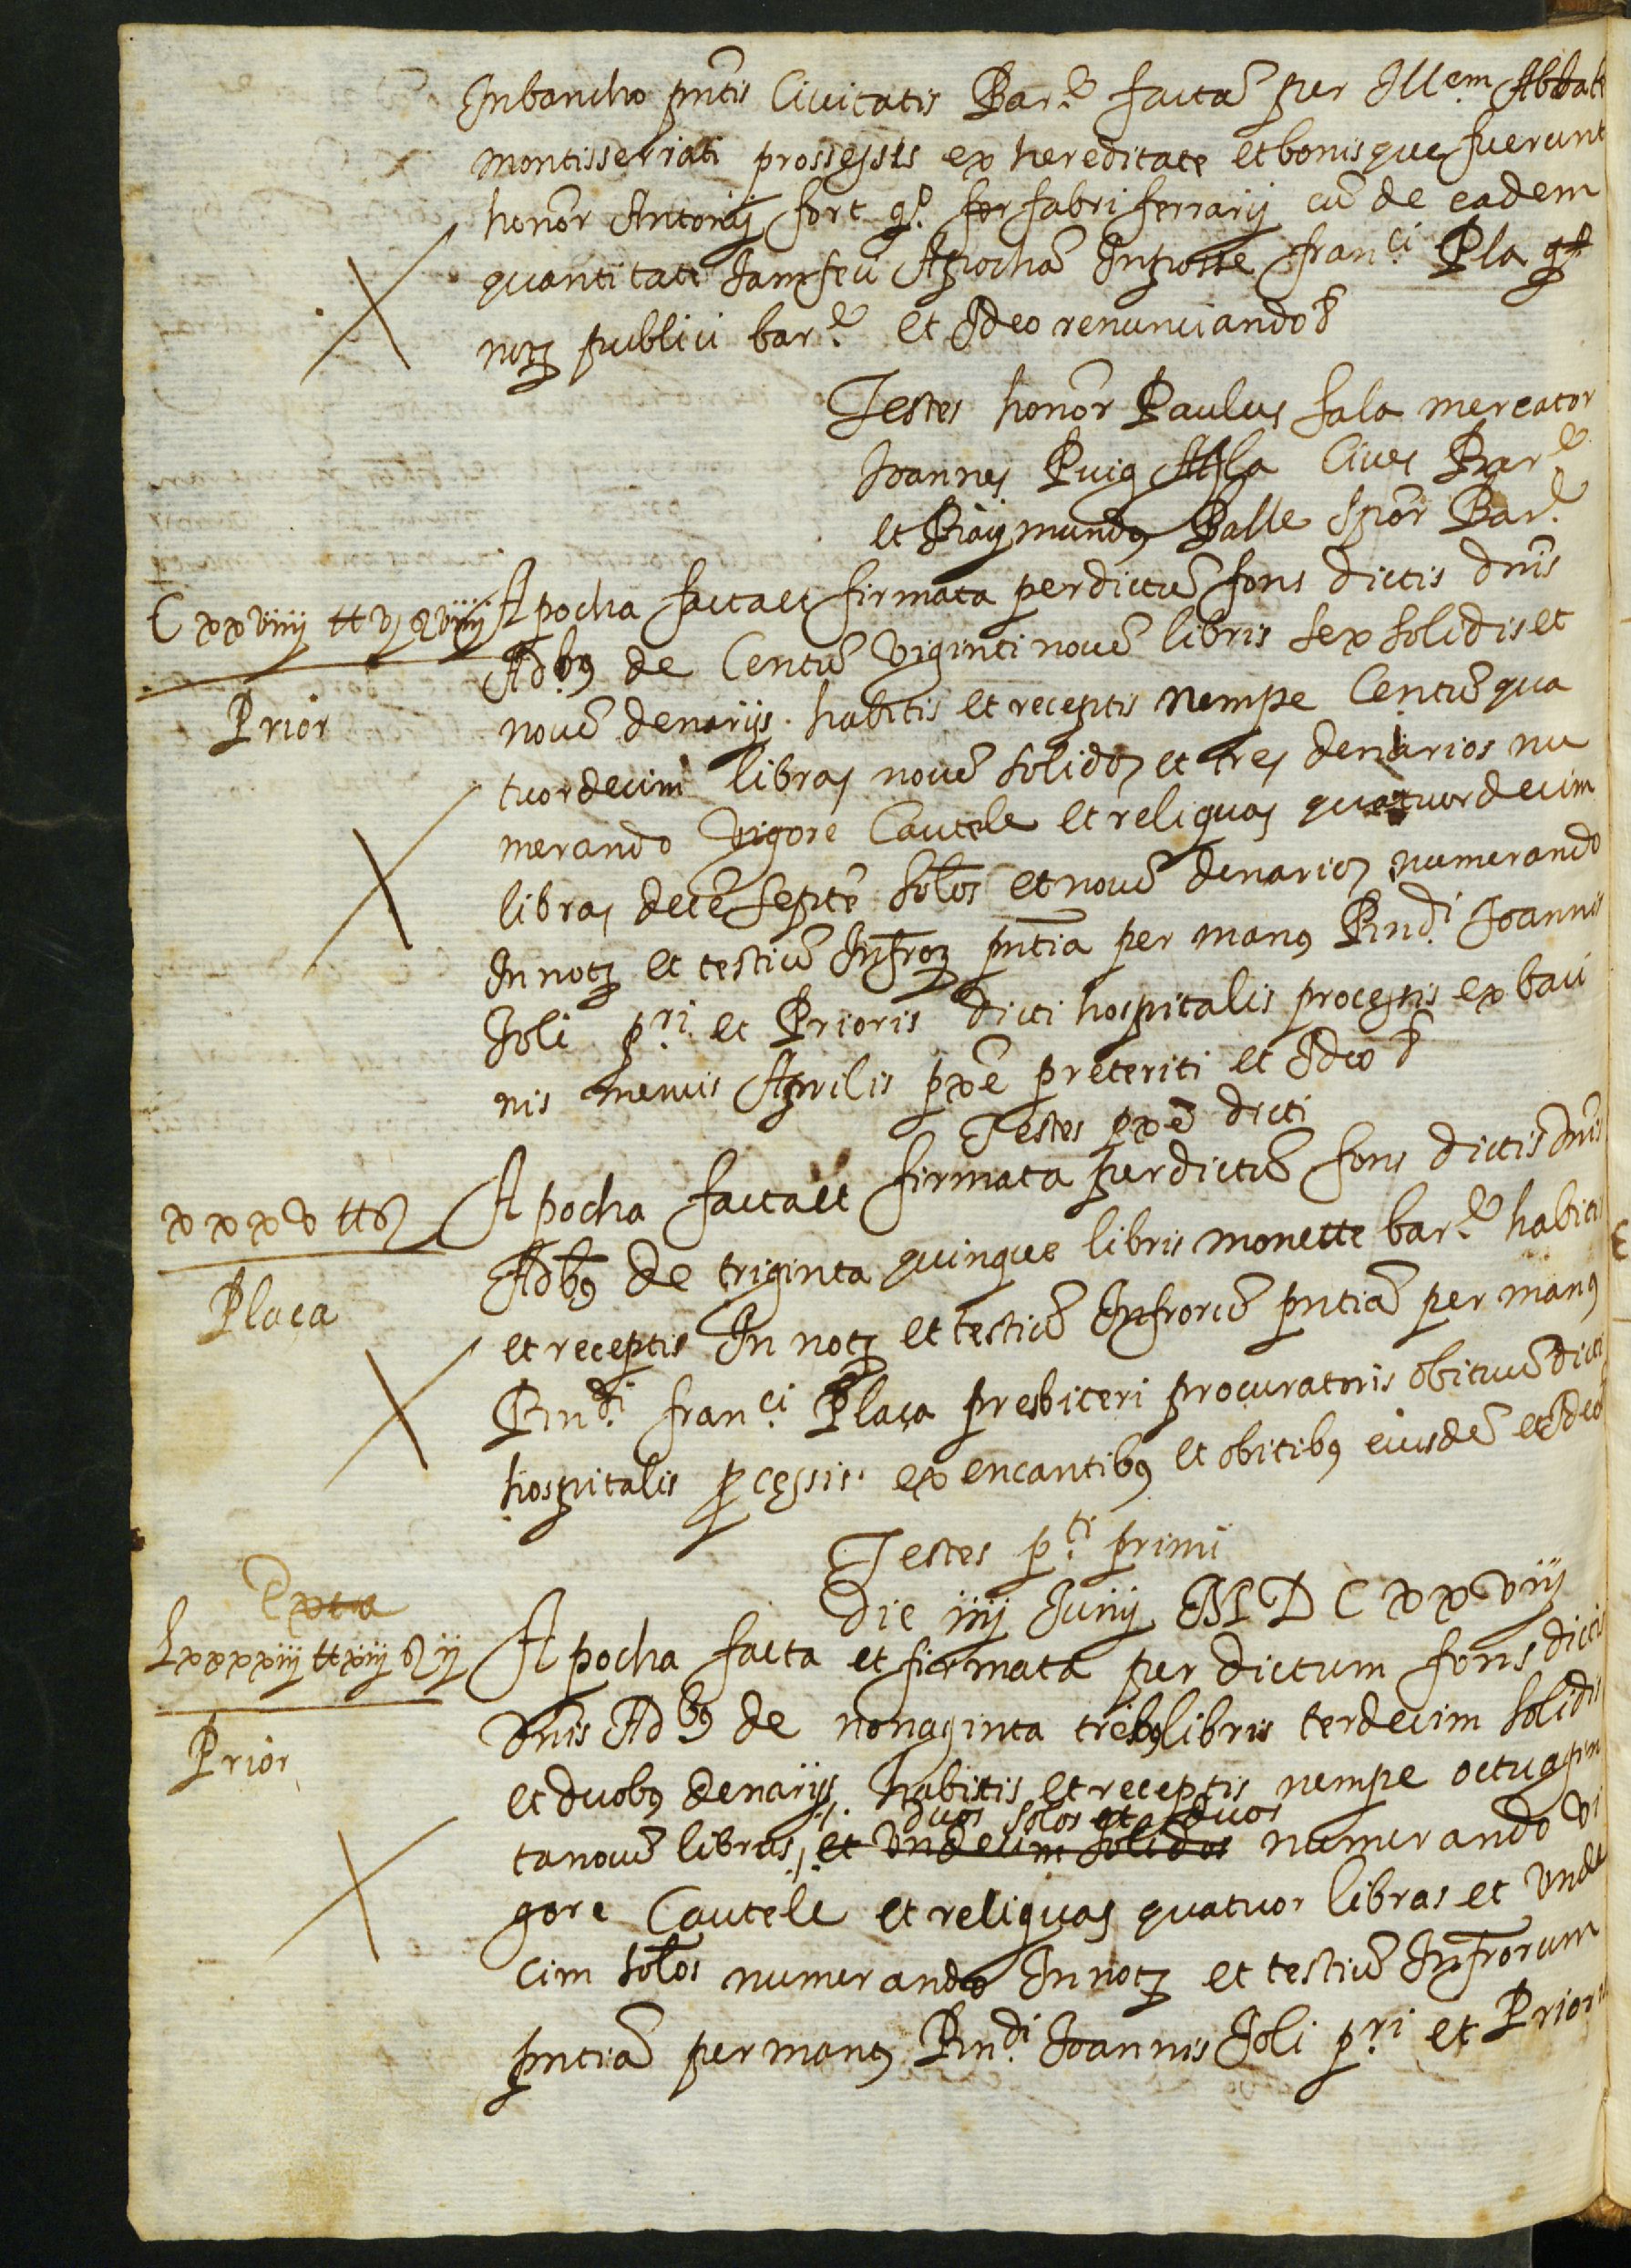 In bancho pn̄tis Ciuitatis Barͤ. factā per Illem. Abbatē
montisserrati processis ex hereditate et bonis que fuerunt
honōr Antonij fort qº. for fabri ferrarij cū de eadem
quantitate Iamfeu Apochā In posse franci. Pla
notȝ publici barͤ. et Ideo renunciando &
Testes honōr Paulus sala mercator
Joannes Puig Cives Barͤ.
et Raÿmundꝯ Balle Barͤ.
C xxviiij tt vj s viiij
Apocha facta et firmata per dictū fons dictis dnīs
Adbꝯ de Centū viginti novē libris sex solidis et
Prior
novē denarijs. habitis et receptis nempe Centū qua
tuordecim libras novē solidos et tres denarios nu
merando vigore Cautele et reliquas quatuordecim
libras decē septē solos et novē denarios numerando
In notȝ et testiū Infroȝ pn̄tia per manꝯ Rndi. Joannis
Joli pri. et Prioris dicti hospitalis processis ex baci
nis mensis Aprilis pxē preteriti et Ideo &
Testes pxē dicti
xxxv tt s
Apocha facta et firmata per dictū fons dictis dnīs
Adbꝯ de triginta quinque libris monette barͤ. habitis
Plaça
et receptis In notȝ et testiū Infrorū pntiā per manꝯ
Rndi. franci. Plaça presbiteri procuratoris obituū dicti
hospitalis ꝓcessis. ex encantibꝯ et obitibꝯ eiusdē et Ideo
Testes pti. primi
Die iiij Junij M D C xxviij
Exta
Lxxxxiij tt xiij s ij
Apocha facta et firmata per dictum fons dictis
Dnīs Adbꝯ de nonaginta tribꝯ libris terdecim solidis
Prior
et duobꝯ denarijs habitis et receptis nempe octuagin
duos solos et duos
ta novē libras, et undecim solidos numerando vi
gore Cautele et reliquas quatuor libras et unde
cim solos numerando In notȝ et testiū Infrorum
pntiā per manꝯ Rndi. Joannis Joli pri. et Prioris